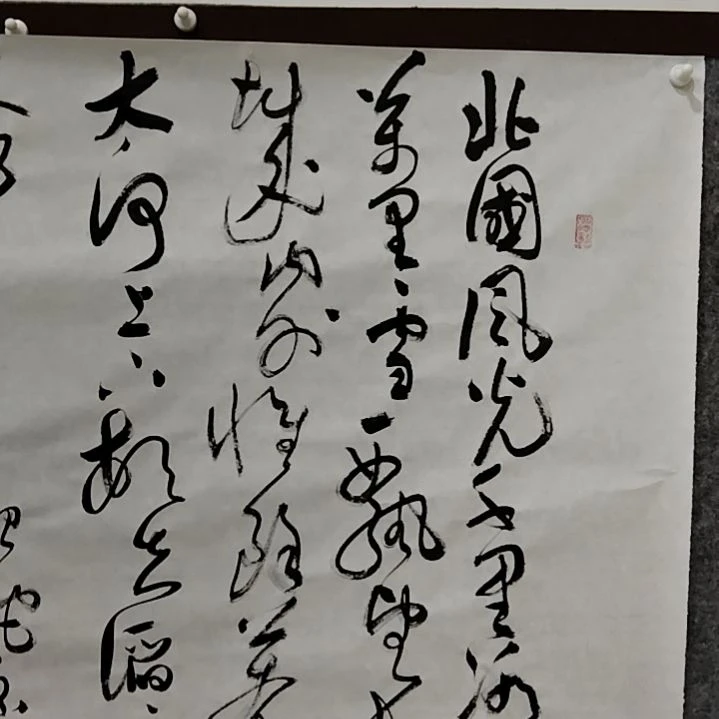 北國風光千里冰
萬里雪飄望
城內外惟餘莽
大河上下頓失滔